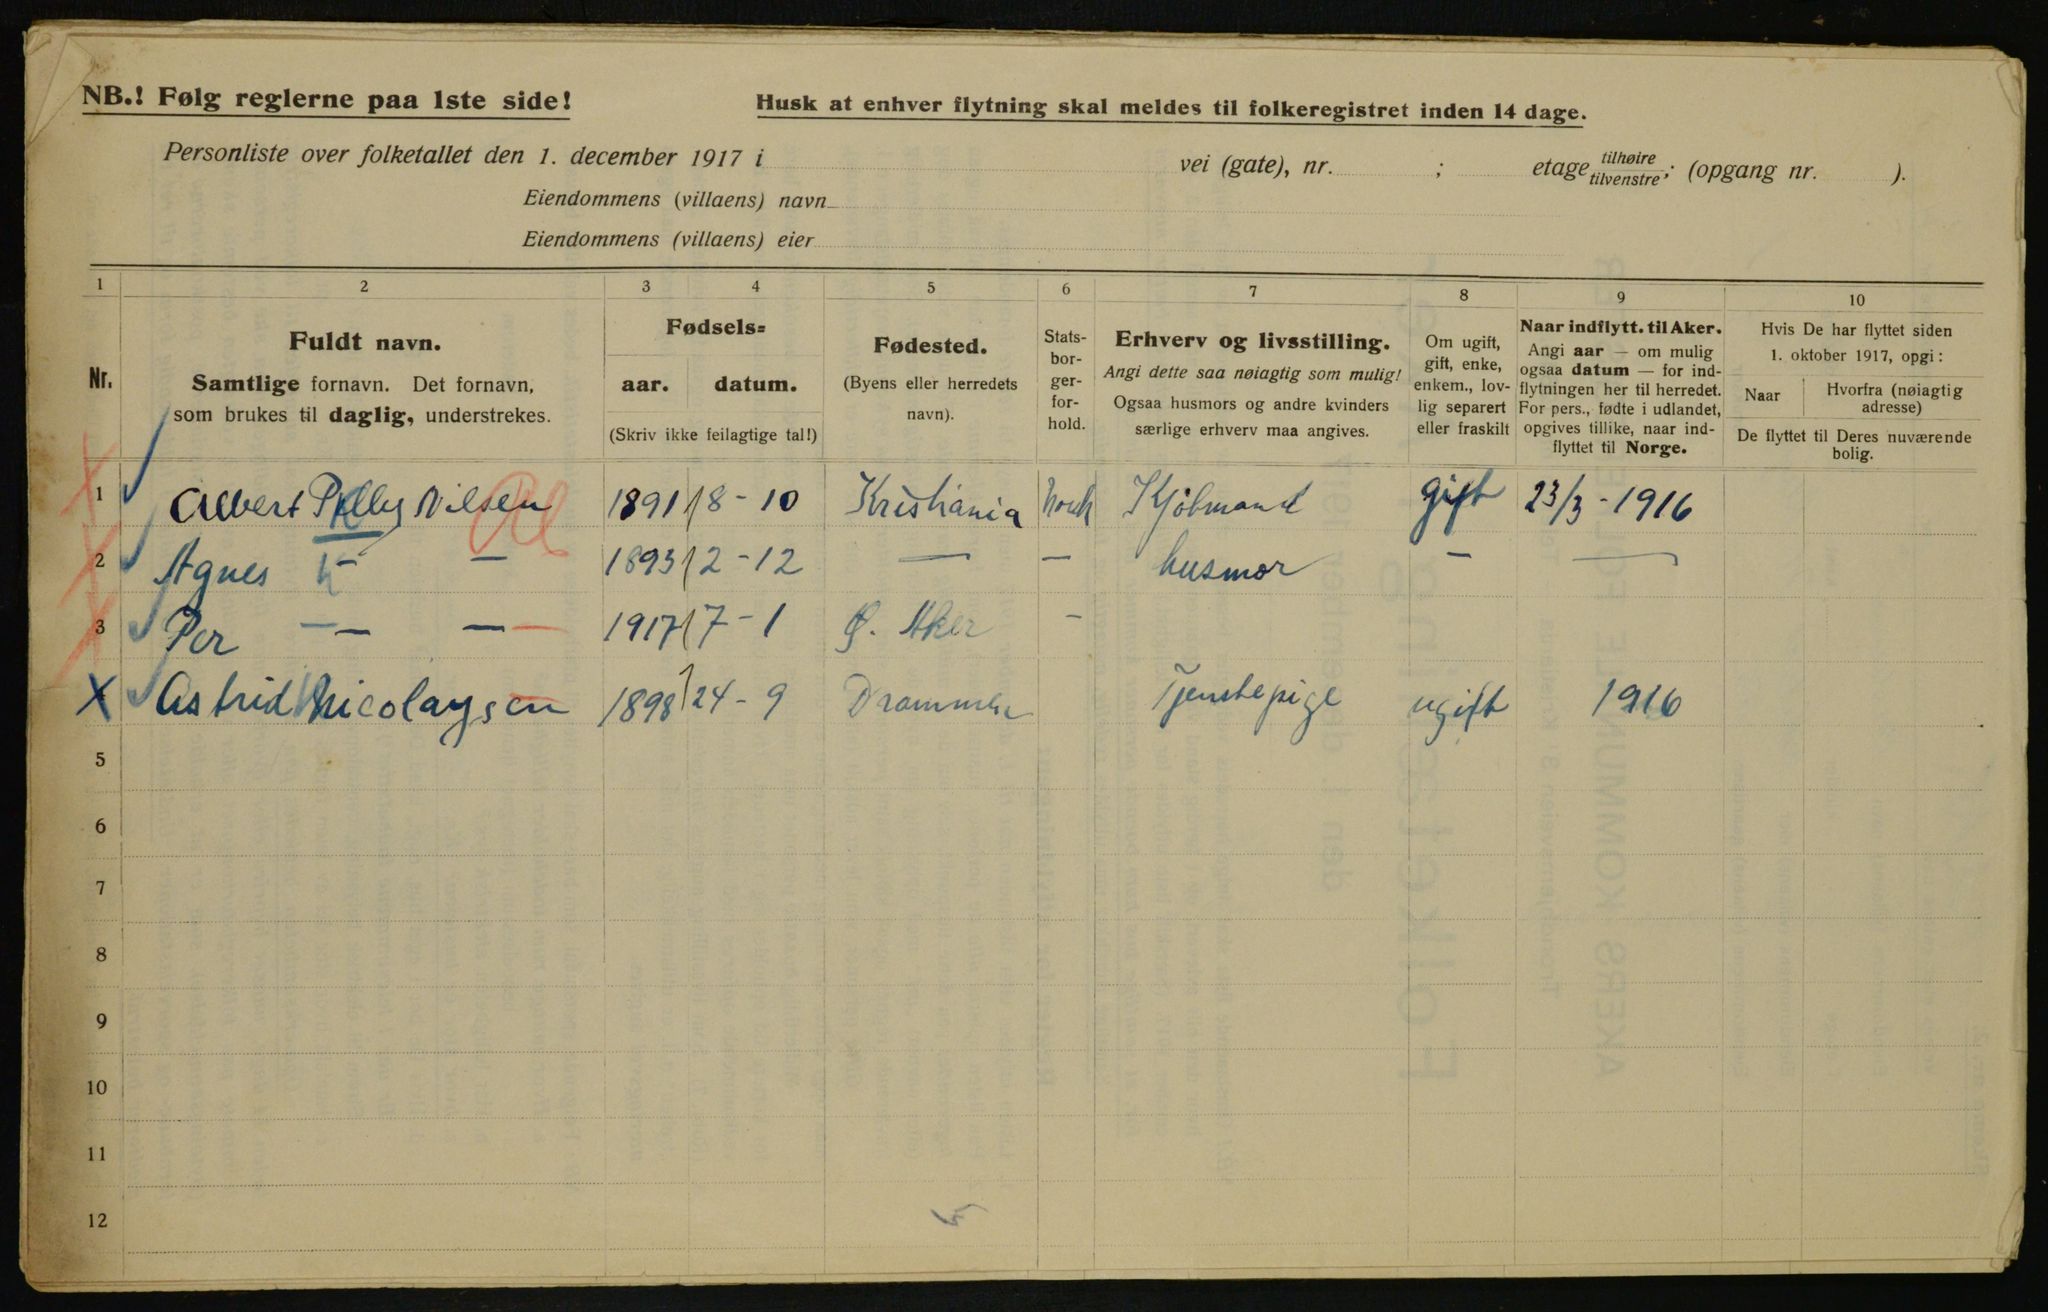 NB.! Følg reglerne paa 1ste side!
Husk at enhver flytning skal meldes til folkeregistret inden 14 dage.
Personliste over folketallet den 1. december 1917 i vei (gate), nr. ; etage tilhøire tilvenstre; (opgang nr. ).
Eiendommens (villaens) navn
Eiendommens (villaens) eier
1 2 3 4 5 6 7 8 9 10
Nr.
Fuldt navn.
Samtlige fornavn. Det fornavn,
som brukes til daglig, understrekes.
Fødsels=
aar. datum.
(Skriv ikke feilagtige tal!)
Fødested.
(Byens eller herredets
navn).
Stats-
bor-
ger-
for-
hold.
Erhverv og livsstilling.
Angi dette saa nøiagtig som mulig!
Ogsaa husmors og andre kvinders
særlige erhverv maa angives.
Om ugift,
gift, enke,
enkem., lov-
lig separert
eller fraskilt
Naar indflytt. til Aker.
Angi aar — om mulig
ogsaa datum — for ind-
flytningen her til herredet.
For pers., fødte i udlandet,
opgives tillike, naar ind-
flyttet til Norge.
Hvis De har flyttet siden
1. oktober 1917, opgi:
Naar
Hvorfra (nøiagtig
adresse)
De flyttet til Deres nuværende
bolig.
1 Albert Nilsen 1891 8 - 10 Kristiania Norsk Kjøbmand gift 23/3 - 1916
2 Agnes — — 1893 2 - 12 — — husmor — —
3 Per — — 1917 7 - 1 Ø. Aker —
Astrid Nicolaysen 1898 24 - 9 Drammen Tjenstepige ugift 1916
5
6
7
8
9
10
11
12